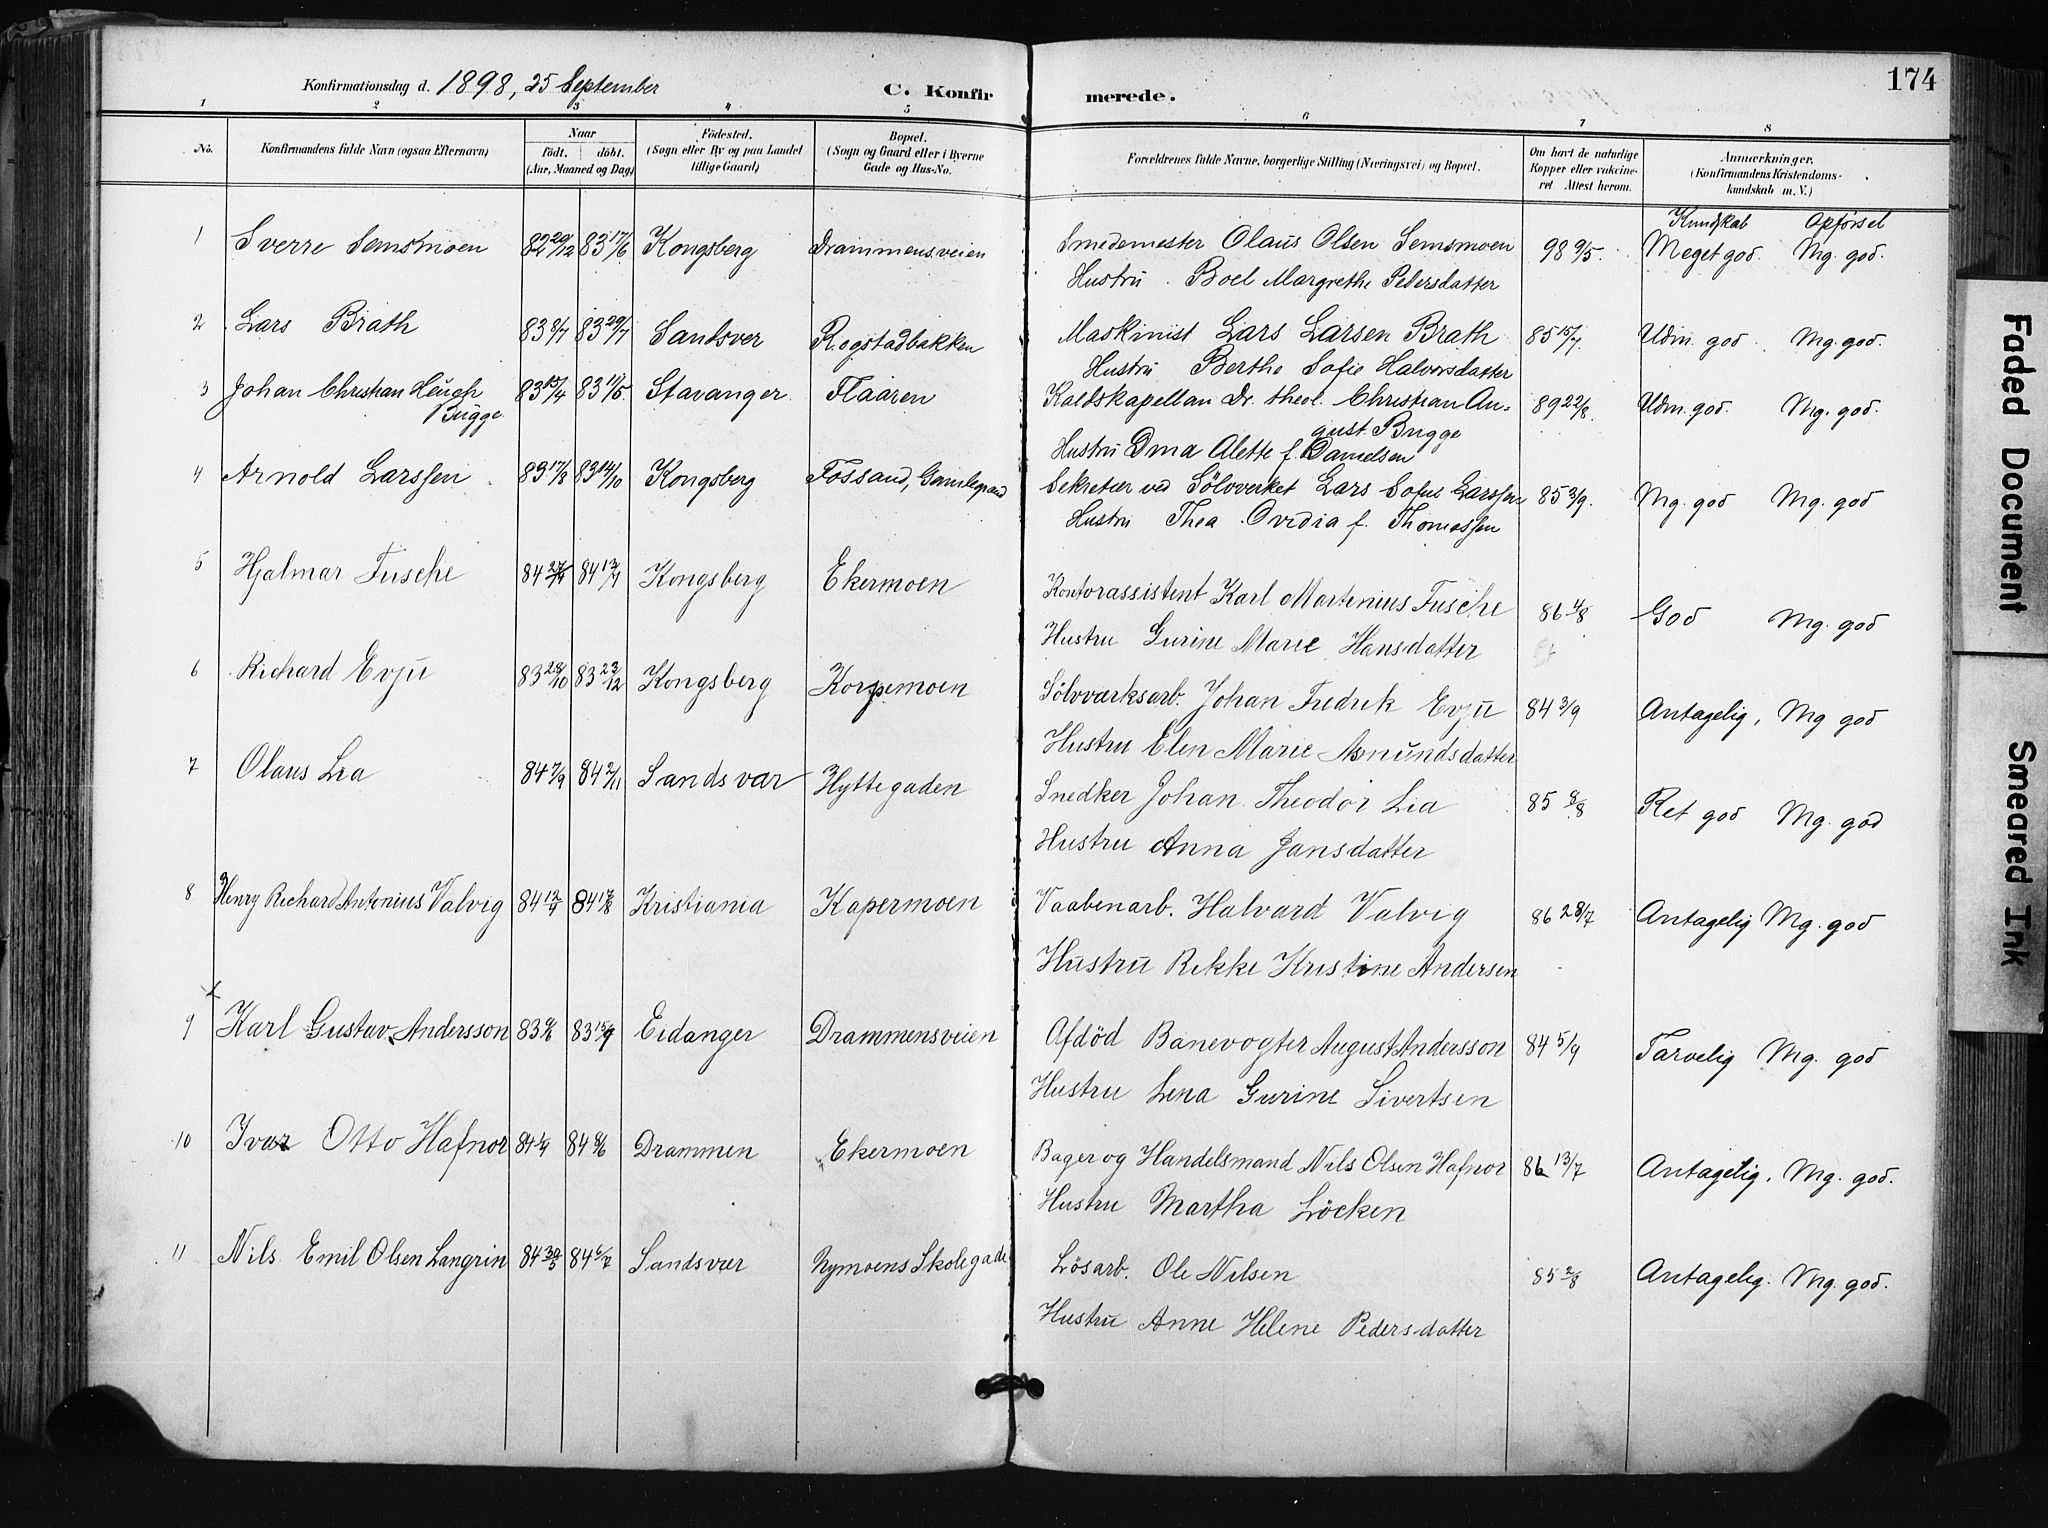 174
Konfirmationsdag d. 1898, 25 September C. Konfirmerede.
1 2 3 4 5 6 7 8
No. Konfirmandens fulde Navn (ogsaa Efternavn) Naar födt. döbt. (Aar, Maaned og Dag) Födested. (Sogn eller By og paa Landet tillige Gaard) Bopæl. (Sogn og Gaard eller i Byerne Gade og Hus-No. Forældrenes fulde Navne, borgerlige Stilling (Næringsvei) og Bopæl. Om havt de naturlige Kopper eller vakcineret. Attest herom. Anmærkninger. (Konfirmandens Kristendomskundskab m. V.)
Kundskab Opførsel
1 Sverre Semsmoen 82 20/12 83 17/6 Kongsberg Drammensveien Smedemester Olaus Olsen Semsmoen 98 9/5. Meget god. Mg. god.
Hustru Boel Margrethe Pedersdatter
2 Lars Brath 83 8/7 83 29/7 Sandsver Rogstadbakken Maskinist Lars Larsen Brath 85 15/7. Udm. god. Mg. god.
Hustru Berthe Sofie Halvorsdatter
3 Johan Christian Heuch Bugge 83 15/4 83 11/5. Stavanger Flaaren Kaldskapellan Dr. theol. Christian August Bugge 89 22/8. Udm. god. Mg. god.
Hustru Dina Alette f. Danielsen
4 Arnold Larssen 83 17/8 83 14/10 Kongsberg Fossand, Gamlegrand Sekretær ved Sölvverket Lars Sofus Larssen 85 3/9. Mg. god Mg. god
Hustru Thea Ovidia f. Thomassen
5 Hjalmar Fusche 84 84 13/7 Kongsberg Ekermoen Kontorassistent Karl Martinius Fusche 86 4/8 God Mg. god
Hustru Gurine Marie Hansdatter
6 Richard Evju 83 28/10 83 23/12 Kongsberg Korpemoen Sölvværksarb. Johan Fredrik Evju 84 3/9 Antagelig, Mg god
Hustru Elen Marie Asmundsdatter
7 Olaus Lia 84 7/9 84 2/11 Sandsvær Hyttegaden Snedker Johan Theodor Lia 85 8/8 Ret god Mg. god
Hustru Anna Jansdatter
8 Henry Richard Antonius Valvig 84 12/4 84 17/8 Kristiania Kapermoen Vaabenarb. Halvard Valvig 86 28/7 Antagelig Mg. god
Hustru Rikke Kristine Andersen
9 Karl Gustav Andersson 83 83 15/9 Eidanger Drammensveien Afdöd Banevogter August Andersson 84 5/9 Tarvelig Mg. god
Hustru Lena Gurine Sivertsen
10 Ivar Otto Hafnor 84 1/4 84 8/6 Drammen Ekermoen Bager og Handelsmand Nils Olsen Hafnor 86 13/7 Antagelig. Mg. god.
Hustru Martha Löcken
11 Nils Emil Olsen Langrin 84 30/5 84 6/7 Sandsvær Nymoens Skolegade Lösarb. Ole Nilsen 85 2/8 Antagelig. Mg. god.
Hustru Anne Helene Pedersdatter
Faded Document
Smeared Ink